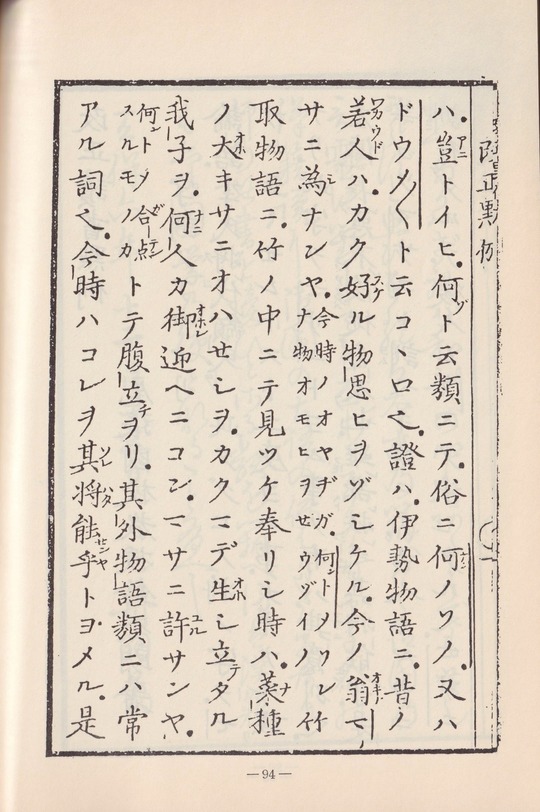 ハ。豈トイヒ。何ト云類ニテ。俗ニ何ノソノ。又ハ
ドウメ〱ト云コヽロ也。證ハ。伊勢物語ニ。昔ノ
若人ハ。カク好ル物思ヒヲゾシケル。今ノ翁マ
サニ為ナンヤ。今時ノオヤヂガ。何ントメソレ
ナ物オモヒヲせウゾイノ 竹
取物語ニ。竹ノ中ニテ見ツケ奉リシ時ハ。菜種
ノ大キサニオハせシヲ。カクマデ生シ立タル
我子ヲ。何人カ御迎ヘニコン。マサニ許サンヤ。
何ントメ合点
スルモノカ トテ腹立ヲリ。其外物語類ニハ常
アル詞也。今時ハコレヲ其将能乎トヨメル。是
—94—